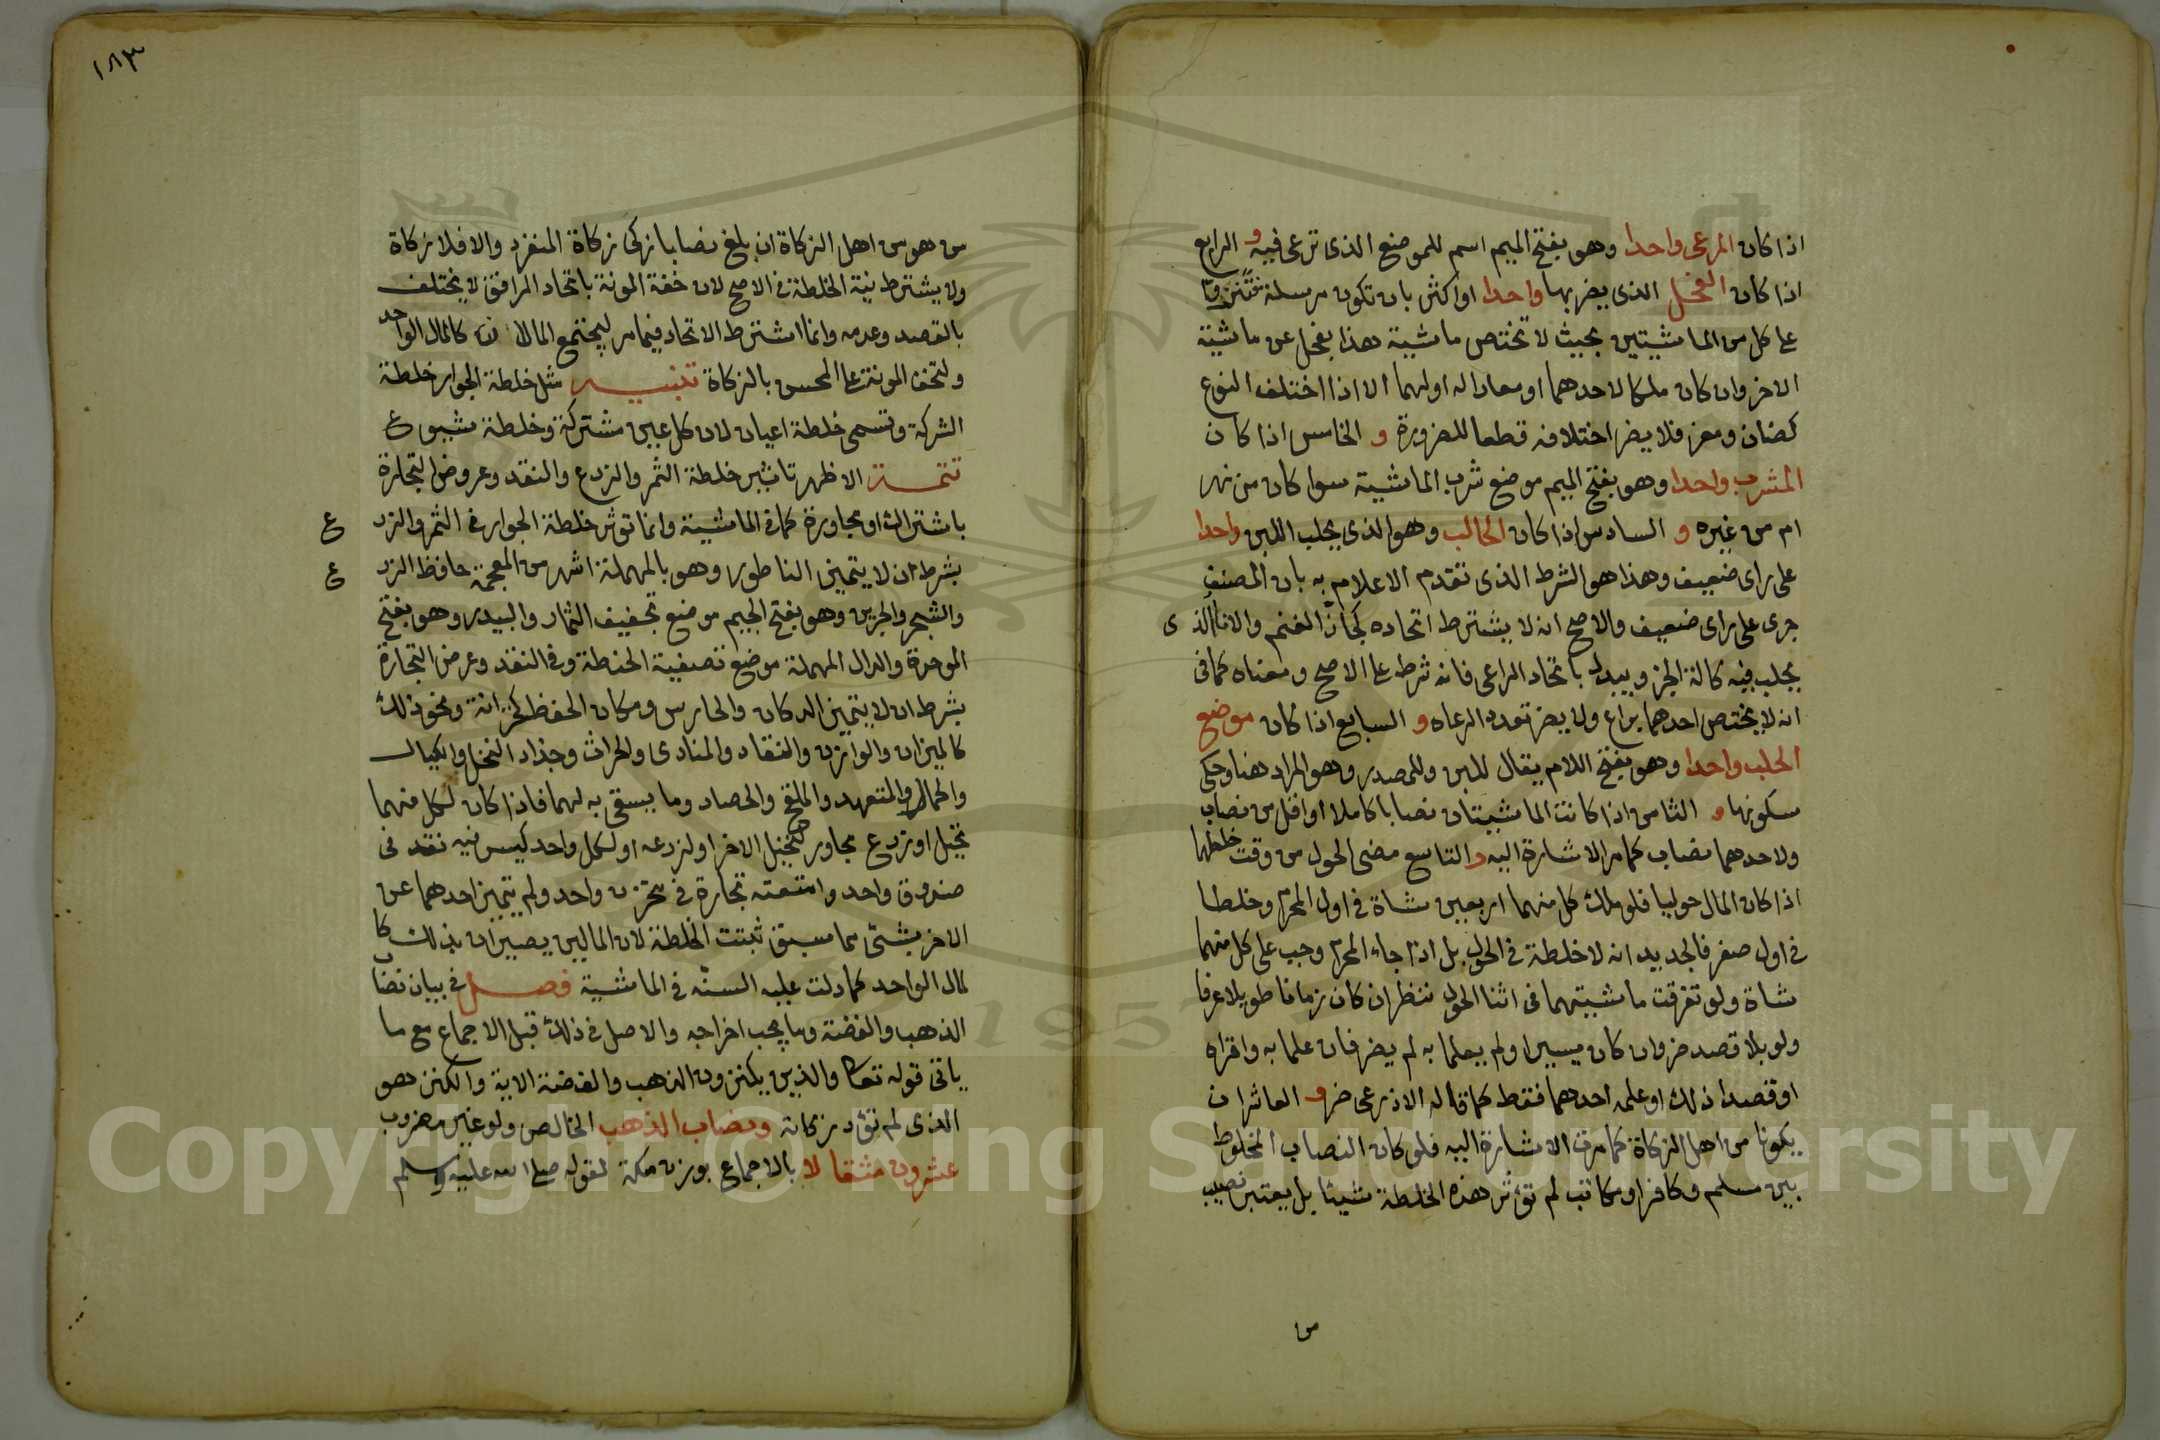 اذا كان المرعى واحدا وهو بفتح الميم اسم للموضع الذى ترعى فيه و الرابع
اذا كان الفحل الذى يضربها واحدا او اكثر بان تكون مرسلة تنزو
على كل من الماشيتين بحيث لا تختص ماشية هذا بفحل عن ماشية
الاخر وان كان ملكا لاحدهما او معارا له او لهما الا اذا اختلف النوع
كضان ومعز فلا يضر اختلافه قطعا للضرورة و الخامس اذا كان
المشرب واحدا وهو بفتح الميم موضع شرب الماشية سوا كان من نهر
ام من غيره و السادس اذا كان الحالب وهو الذى يحلب اللبن واحدا
على راى ضعيف وهذا هو الشرط الذى تقدم الاعلام به بان المصنف
جرى على راى ضعيف والاصح انه لا يشترط اتحاده كجاز الغنم والانا الذى
يحلب فيه كالة الجز ويبدل باتحاد الراعى فانه شرط على الاصح ومعناه كما فى
انه لا يختص احدهما براع ولا يضر تعدد الرعاه و السابع اذا كان موضع
الحلب واحدا وهو بفتح اللام يقال للبن وللمصدر وهو المراد هنا وحكى
سكونها و الثامن اذا كانت الماشيتان نصابا كاملا او اقل من نصاب
ولاحدهما نصاب كما مر الاشارة اليه و التاسع مضى الحول من وقت خلطهما
اذا كان المال حوليا فلو ملك كل منهما اربعين شاة فى اول المحرم وخلطا
فى اول صفر فالجديد انه لا خلطة فى الحول بل اذا جاء المحرم وجب على كل منهما
شاة ولو تفرقت ماشيتهما فى اثنا الحول نظر ان كان زمانا طويلا عرفا
ولو بلا قصد ضر وان كان يسيرا ولم يعلما به لم يضر فان علما به واقراه
او قصدا ذلك او علمه احدهما فقط كما قاله الاذرعى ضر و العاشر ان
يكونا من اهل الزكاة كما مرت الاشارة اليه فلو كان النصاب المخلوط
بين مسلم وكافر او مكاتب لم تؤثر هذه الخلطة شيئا بل يعتبر نصيب
من
١٨٣
من هو من اهل الزكاة ان بلغ نصابا زكى زكاة المنفرد والا فلا زكاة
ولا يشترط نية الخلطة فى الاصح لان خفة المونة باتحاد المرافق لا يختلف
بالقصد وعدمه وانما اشترط الاتحاد فيما مر ليجتمع المالان كالمال الواحد
ولتخف المونة على المحسن بالزكاة تنبيه مثل خلطة الجوار خلطة
الشركة وتسمى خلطة اعيان لان كل عين مشتركة وخلطة شيوع
تتمة الاظهر تاثير خلطة الثمر والزرع والنقد وعروض التجارة
باشتراك او مجاورة كما فى الماشية وانما توثر خلطة الجوار فى الثمر والزر ع
بشرط ان لا يتميز الناطور وهو بالمهملة اشهر من المعجمة حافظ الزر ع
والشجر والجرين وهو بفتح الجيم موضع تجفيف الثمار والبيدر وهو بفتح
الموحدة والدال المهملة موضع تصفية الحنطة وفى النقد وعرض التجارة
بشرط ان لا يتميز الدكان والحارس ومكان الحفظ كخزانة ونحو ذلك
كالميزان والوازن والنقاد والمنادى والحراث وجذاد النخل والكيال
والحمال والمتعهد والملقح والحصاد وما يسقى به لهما فاذا كان لكل منهما
نخيل او زرع مجاور لنخيل الاخر او لزرعه او لكل واحد كيس فيه نقد فى
صندوق واحد وامتعته تجارة فى مخزن واحد ولم يتميز احدهما عن
الاخر بشئ مما سبق ثبتت الخلطة لان المالين يصيران بذلك كا
لمال الواحد كما دلت عليه السنة فى الماشية فصل فى بيان نصاب
الذهب والفضة وما يجب اخراجه والاصل فى ذلك قبل الاجماع مع ما
ياتى قوله تعالى والذين يكنزون الذهب والفضة الاية والكنز هو
الذى لم تؤد زكاته ونصاب الذهب الخالص ولو غير مضروب
عشرون مثقالا بالاجماع بوزن مكة لقوله صلى الله عليه وسلم